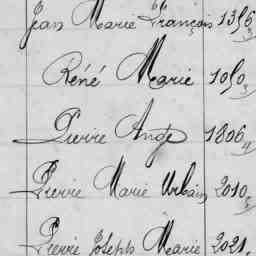 Jean Marie François 1356 3
Réné Marie 1050 3
Pierre Ange 1806 4
Pierre Marie Urbain 2010 5
Pierre Joseph Marie 2021